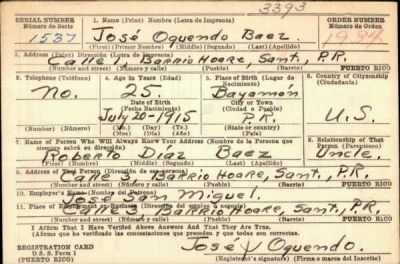 3393
SERIAL NUMBER
Número de Serie
1. Name (Print) Nombre (Letra de Imprenta)
ORDER NUMBER
Número de Orden
1537
José Oquendo Baez.
(First) (Primer Nombre) (Middle) (Segundo) (Last) (Apellido)
Address (Print) Dirección (Letra de Imprenta)
Calle 1. Barrio Hoare, Sant., P.R.
(Number and street) (Número y calle) (Pueblo) (Barrio) PUERTO RICO
Telephone (Teléfono)
4. Age in Years (Edad)
5. Place of Birth (Lugar de Nacimiento)
6. Country of Citizenship (Ciudadanía)
No.
25.
Bayamón
Date of Birth
(Fecha Nacimiento)
City or Town
(Ciudad o Pueblo)
July-20-1915
P.R.
U.S.
(Number) (Número)
(Mo.) (Mes) (Day) (Día) (Yr.) (Año)
(State or country)
7. Name of Person Who Will Always Know Your Address (Nombre de la Persona que siempre sabrá su dirección)
8. Relationship of That Person (Parentesco)
Roberto Díaz Baez
Uncle.
(First) (Middle) (Segundo) (Last) (Apellido)
9. Address of That Person (Dirección de esa persona)
Calle 3. Barrio Hoare, Sant., P.R.
(Number and street) (Número y calle) (Pueblo) (Barrio) PUERTO RICO
10. Employer's Name
José San Miguel.
11. Place of Employment or Business (Dirección del empleo o negocio)
Barrio Hoare, Sant., P.R.
(Number and street) (Número y calle) (Pueblo) (Barrio) PUERTO RICO
I Affirm That I Have Verified Above Answers And That They Are True.
(Afirmo que he verificado las contestaciones que preceden y que todas son correctas)
REGISTRATION CARD
D. S. S. Form 1
(PUERTO RICO)
José Oquendo.
(Registrant's signature) (Firma o marca del Inscrito)